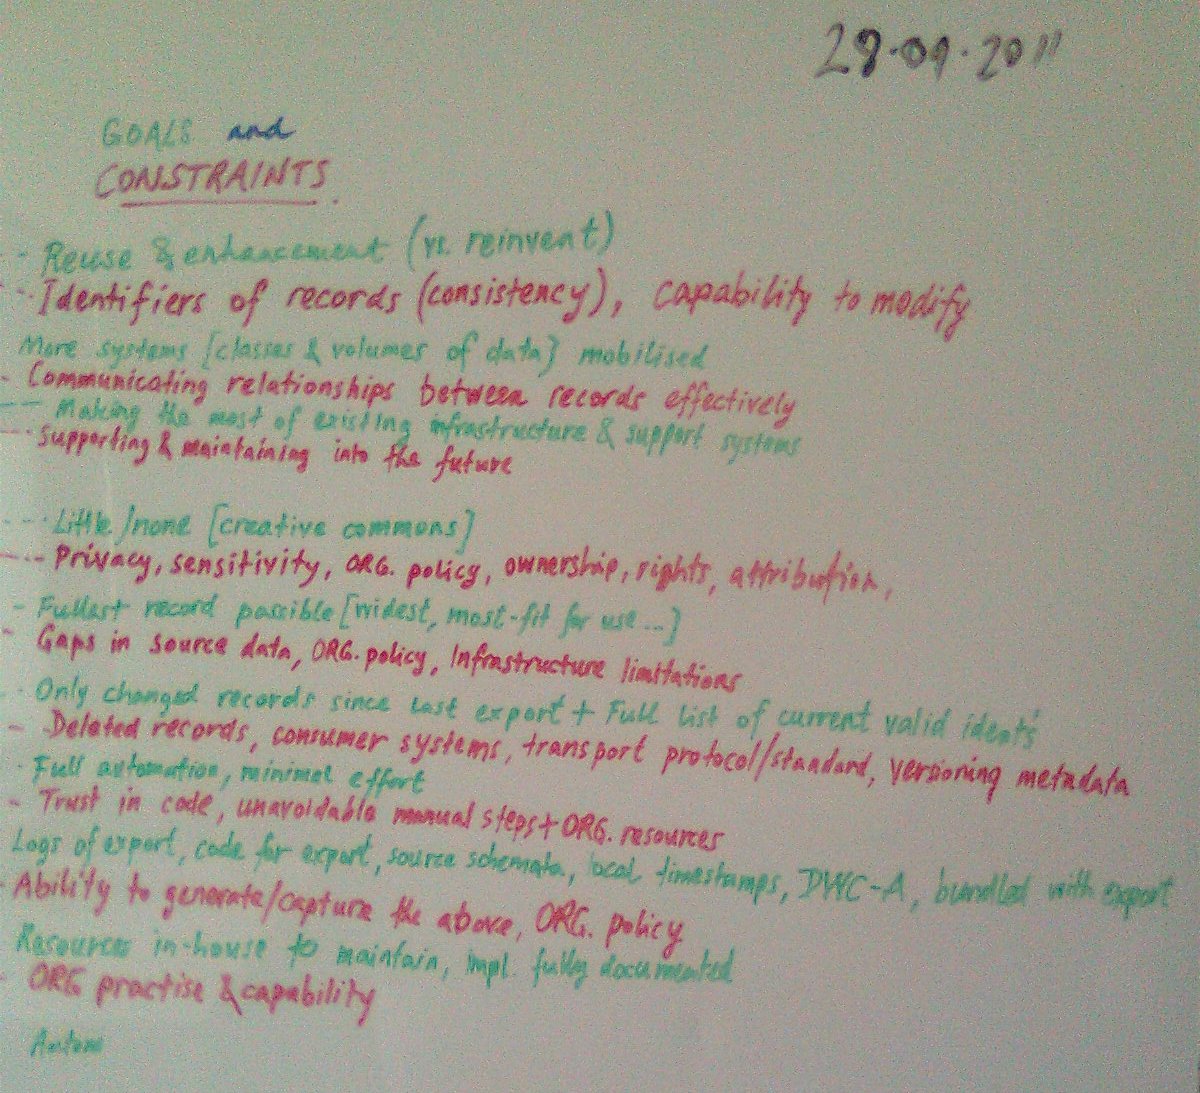 29.09.2011
GOALS and
CONSTRAINTS.
- Reuse & enhancement (vs. reinvent)
- Identifiers of records (consistency), capability to modify
More systems [classes & volumes of data] mobilised
- Communicating relationships between records effectively
- Making the most of existing infrastructure & support systems
- Supporting & maintaining into the future
- Little/none [creative commons]
- Privacy, sensitivity, ORG. policy, ownership, rights, attribution,
- Fullest record possible [widest, most-fit for use...]
- Gaps in source data, ORG. policy, Infrastructure limitations
- Only changed records since last export + Full list of current valid idents
- Deleted records, consumer systems, transport protocol/standard, versioning metadata
- Full automation, minimal effort
- Trust in code, unavoidable manual steps + ORG. resources
Logs of export, code for export, source schemata, local timestamps, DWC-A, bundled with export
- Ability to generate/capture the above, ORG. policy
Resources in-house to maintain, impl. fully documented
- ORG practise & capability